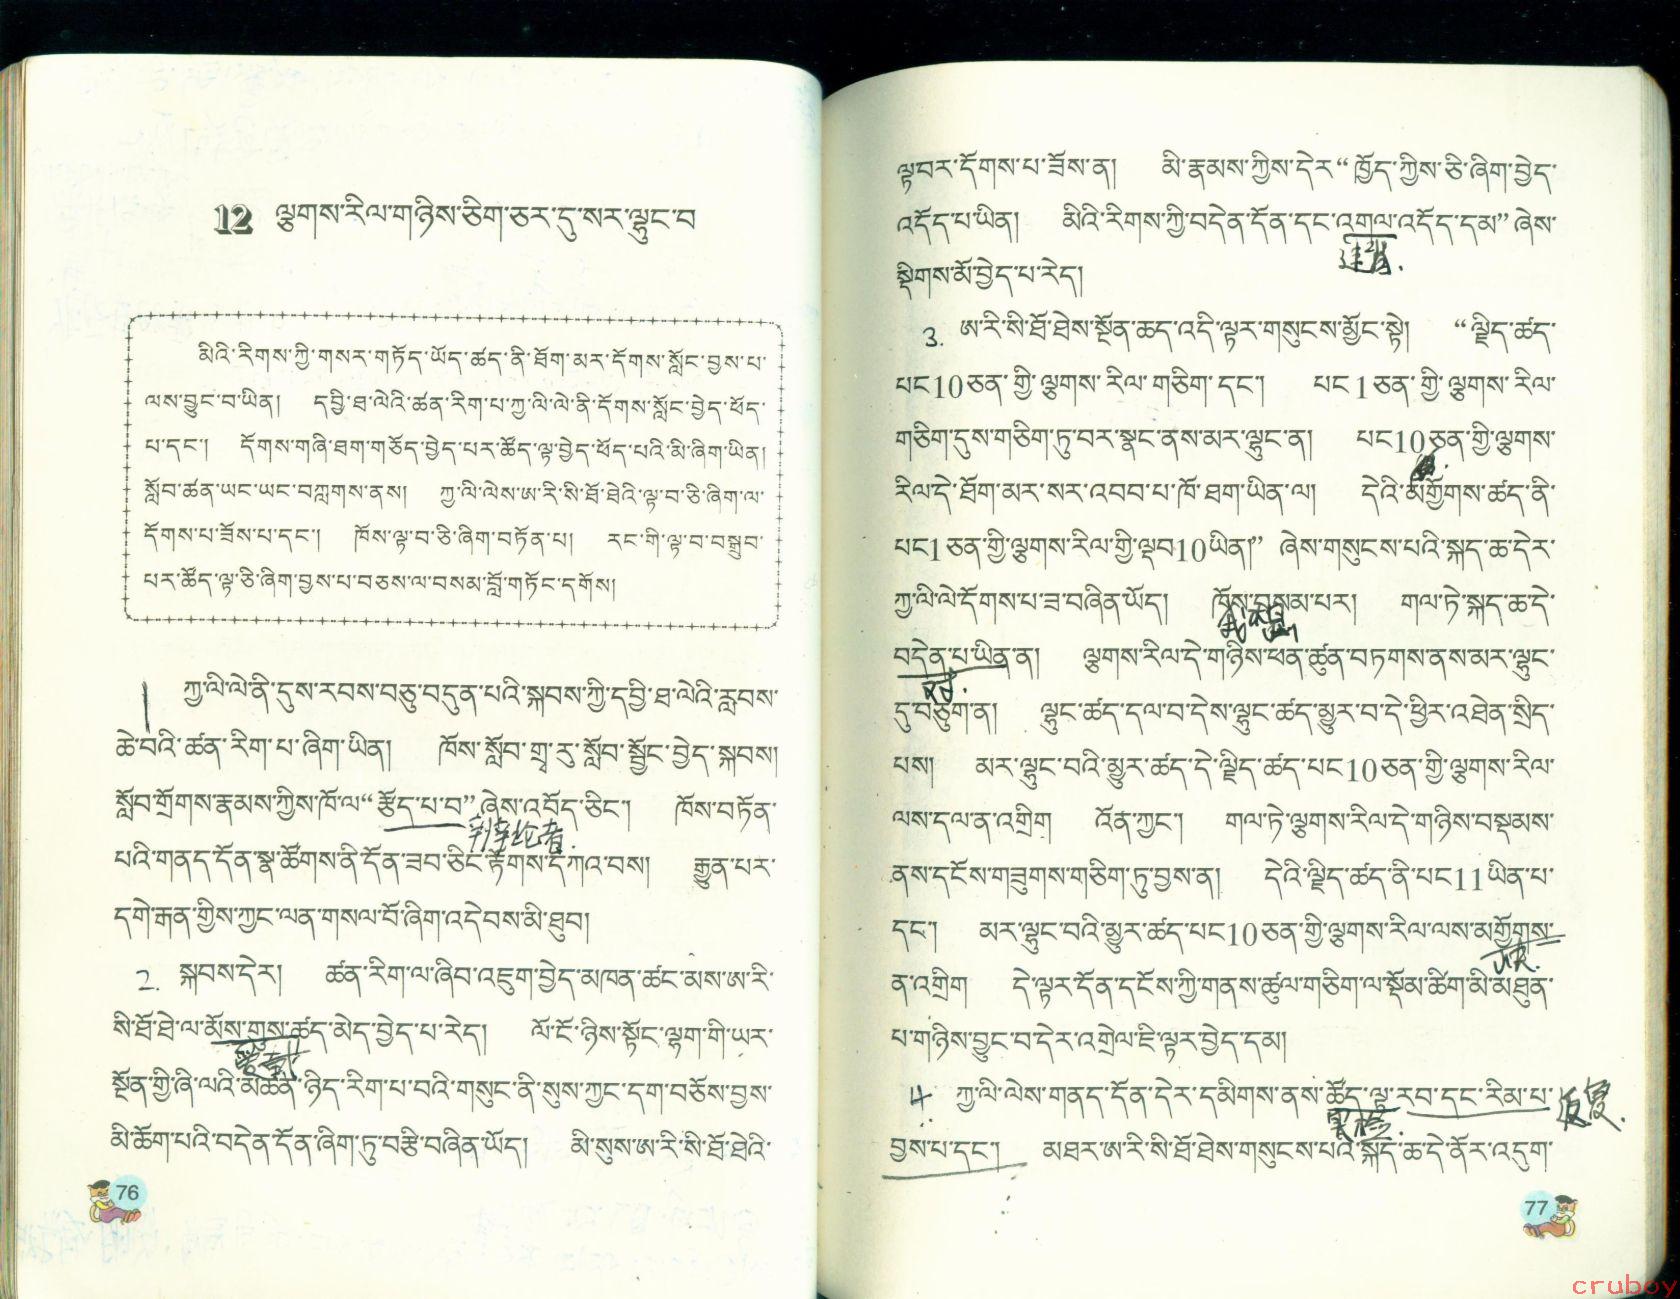 12 ལྕགས་རིལ་གཉིས་ཅིག་ཅར་དུ་སར་ལྷུང་བ
མིའི་རིགས་ཀྱི་གསར་གཏོད་ཡོད་ཚད་ནི་ཐོག་མར་དོགས་སློང་བྱས་པ་
ལས་བྱུང་བ་ཡིན། དབྱི་ཐ་ལེའི་ཚན་རིག་པ་ཀྱ་ལི་ལེ་ནི་དོགས་སློང་བྱེད་ཕོད་
པ་དང་། དོགས་གཞི་ཐག་གཅོད་བྱེད་པར་ཚོད་ལྟ་བྱེད་ཕོད་པའི་མི་ཞིག་ཡིན།
སློབ་ཚན་ཡང་ཡང་བཀླགས་ནས། ཀྱ་ལི་ལེས་ཨ་རི་སི་ཐོ་ཐེའི་ལྟ་བ་ཅི་ཞིག་ལ་
དོགས་པ་ཟོས་པ་དང་། ཁོས་ལྟ་བ་ཅི་ཞིག་བཏོན་པ། རང་གི་ལྟ་བ་བསྒྲུབ་
པར་ཚོད་ལྟ་ཅི་ཞིག་བྱས་པ་བཅས་ལ་བསམ་བློ་གཏོང་དགོས།
1 ཀྱ་ལི་ལེ་ནི་དུས་རབས་བཅུ་བདུན་པའི་སྐབས་ཀྱི་དབྱི་ཐ་ལེའི་རླབས་
ཆེ་བའི་ཚན་རིག་པ་ཞིག་ཡིན། ཁོས་སློབ་གྲྭ་རུ་སློབ་སྦྱོང་བྱེད་སྐབས།
སློབ་གྲོགས་རྣམས་ཀྱིས་ཁོ་ལ“རྩོད་པ་བ”ཞེས་འབོད་ཅིང་། ཁོས་བཏོན་
辩论者.
པའི་གནད་དོན་སྣ་ཚོགས་ནི་དོན་ཟབ་ཅིང་རྟོགས་དཀའ་བས། རྒྱུན་པར་
དགེ་རྒན་གྱིས་ཀྱང་ལན་གསལ་པོ་ཞིག་འདེབས་མི་ཐུབ།
2. སྐབས་དེར། ཚན་རིག་ལ་ཞིབ་འཇུག་བྱེད་མཁན་ཚང་མས་ཨ་རི་
སི་ཐོ་ཐེ་ལ་མོས་གུས་ཚད་མེད་བྱེད་པ་རེད། ལོ་ངོ་ཉིས་སྟོང་ལྷག་གི་ཡར་
སྔོན་གྱི་ཞི་ལའི་མཚན་ཉིད་རིག་པ་བའི་གསུང་ནི་སུས་ཀྱང་དག་བཅོས་བྱས་
མི་ཆོག་པའི་བདེན་དོན་ཞིག་ཏུ་བརྩི་བཞིན་ཡོད། མི་སུས་ཨ་རི་སི་ཐོ་ཐེའི་
76
ལྟ་བར་དོགས་པ་ཟོས་ན། མི་རྣམས་ཀྱིས་དེར“ཁྱོད་ཀྱིས་ཅི་ཞིག་བྱེད་
འདོད་པ་ཡིན། མིའི་རིགས་ཀྱི་བདེན་དོན་དང་འགལ་འདོད་དམ”ཞེས་
སྡིགས་མོ་བྱེད་པ་རེད།
3. ཨ་རི་སི་ཐོ་ཐེས་སྔོན་ཆད་འདི་ལྟར་གསུངས་མྱོང་སྟེ། “ལྗིད་ཚད་
པང10ཅན་གྱི་ལྕགས་རིལ་གཅིག་དང་། པང1ཅན་གྱི་ལྕགས་རིལ་
གཅིག་དུས་གཅིག་ཏུ་བར་སྣང་ནས་མར་ལྷུང་ན། པང10ཅན་གྱི་ལྕགས་
རིལ་དེ་ཐོག་མར་སར་འབབ་པ་ཁོ་ཐག་ཡིན་ལ། དེའི་མགྱོགས་ཚད་ནི་
པང1ཅན་གྱི་ལྕགས་རིལ་གྱི་ལྡབ10ཡིན།” ཞེས་གསུངས་པའི་སྐད་ཆ་དེར་
ཀྱ་ལི་ལེ་དོགས་པ་ཟ་བཞིན་ཡོད། ཁོས་བསམ་པར། གལ་ཏེ་སྐད་ཆ་དེ་
བདེན་པ་ཡིན་ན། ལྕགས་རིལ་དེ་གཉིས་ཕན་ཚུན་བཏགས་ནས་མར་ལྷུང་
对.
དུ་བཅུག་ན། ལྷུང་ཚད་དལ་བ་དེས་ལྷུང་ཚད་མྱུར་བ་དེ་ཕྱིར་འཐེན་སྲིད་
པས། མར་ལྷུང་བའི་མྱུར་ཚད་དེ་ལྗིད་ཚད་པང10ཅན་གྱི་ལྕགས་རིལ་
ལས་དལ་ན་འགྲིག འོན་ཀྱང་། གལ་ཏེ་ལྕགས་རིལ་དེ་གཉིས་བསྡམས་
ནས་དངོས་གཟུགས་གཅིག་ཏུ་བྱས་ན། དེའི་ལྗིད་ཚད་ནི་པང11ཡིན་པ་
དང་། མར་ལྷུང་བའི་མྱུར་ཚད་པང10ཅན་གྱི་ལྕགས་རིལ་ལས་མགྱོགས་
ན་འགྲིག དེ་ལྟར་དོན་དངོས་ཀྱི་གནས་ཚུལ་གཅིག་ལ་སྡོམ་ཚིག་མི་མཐུན་
པ་གཉིས་བྱུང་བ་དེར་འགྲེལ་ཇི་ལྟར་བྱེད་དམ།
4. ཀྱ་ལི་ལེས་གནད་དོན་དེར་དམིགས་ནས་ཚོད་ལྟ་རབ་དང་རིམ་པ་
反复.
བྱས་པ་དང་། མཐར་ཨ་རི་སི་ཐོ་ཐེས་གསུངས་པའི་སྐད་ཆ་དེ་ནོར་འདུག་
77
cruboy